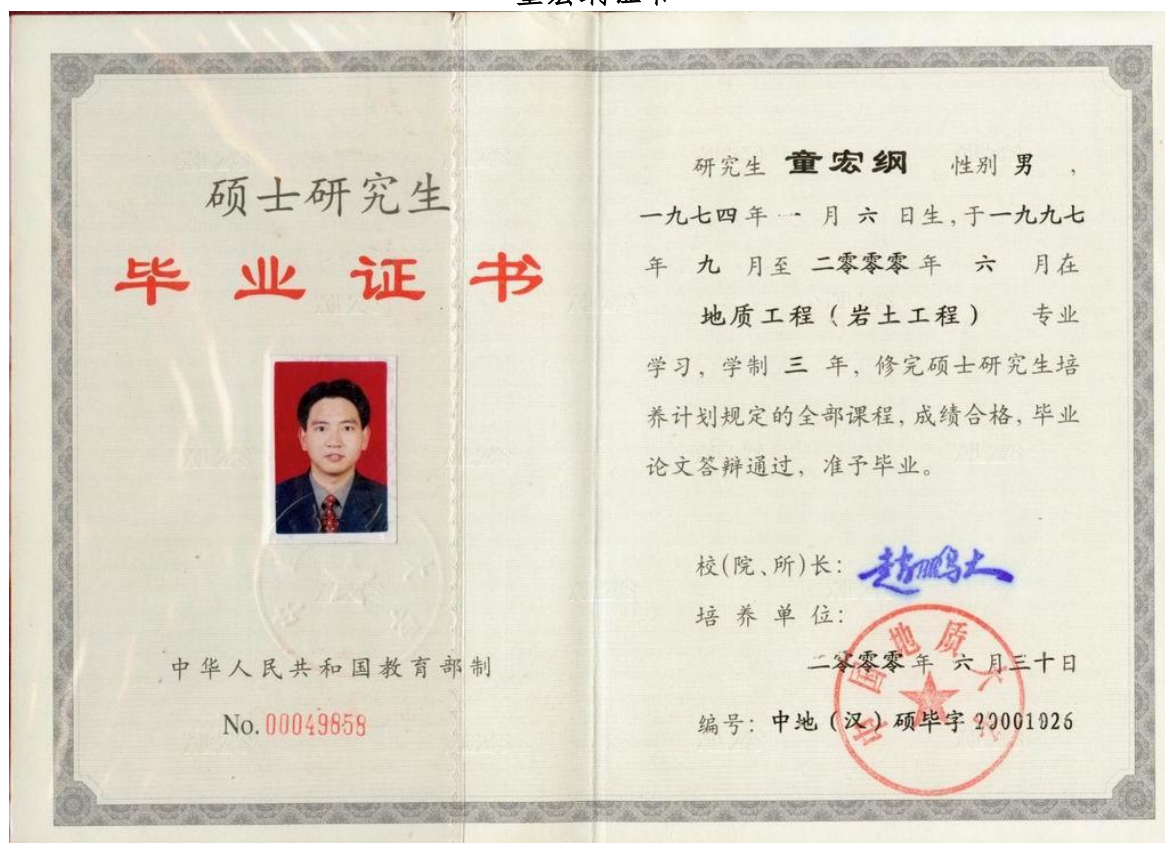 童宏纲证书
硕士研究生
毕业证书
中华人民共和国教育部制
No. 00049858
研究生 童宏纲 性别 男 ,
一九七四年 一 月 六 日生,于一九九七
年 九 月至 二零零零 年 六 月在
地质工程(岩土工程) 专业
学习, 学制 三 年, 修完硕士研究生培
养计划规定的全部课程, 成绩合格, 毕业
论文答辩通过, 准予毕业。
校(院、所)长: 赵鹏大
培 养 单 位:
中国地质大学
二零零零 年 六 月三十日
编号: 中地(汉)硕毕字 20001026